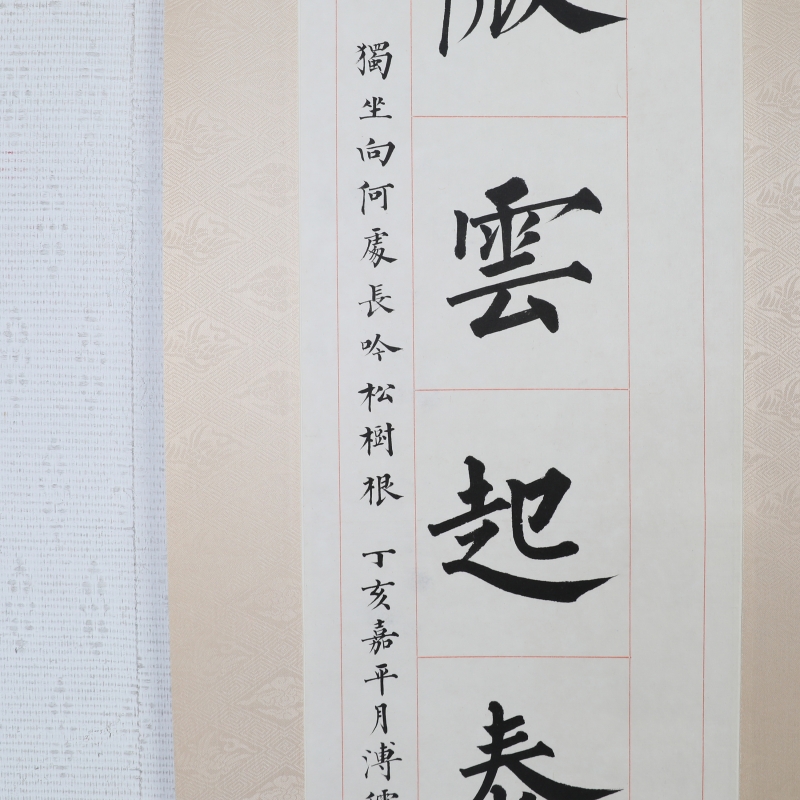 雲起泰
獨坐向何處長吟松樹根 丁亥嘉平月溥儒